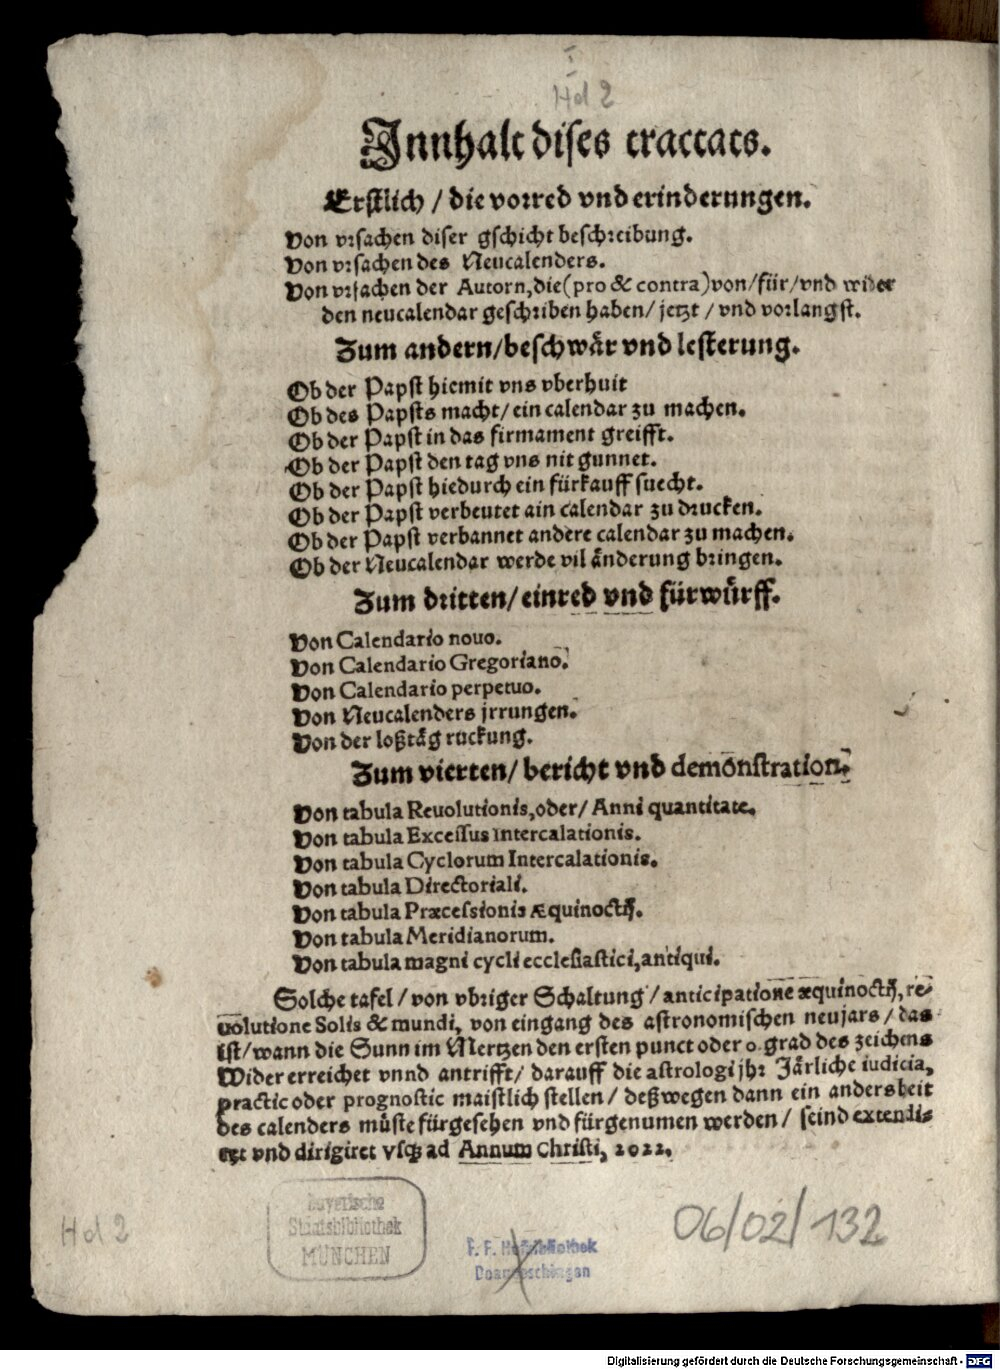 I
Hd 2
Innhalt dises tractats.
Erstlich / die vorred vnd erinderungen.
Von vrsachen diser gschicht beschreibung.
Von vrsachen des Neucalenders.
Von vrsachen der Autorn, die (pro & contra) von / für / vnd wider
den neucalendar geschriben haben / jetzt / vnd vorlangst.
Zum andern / beschwår vnd lesterung.
Ob der Papst hiemit vns vberhuit
Ob des Papsts macht / ein calendar zu machen.
Ob der Papst in das firmament greifft.
Ob der Papst den tag vns nit gunnet.
Ob der Papst hiedurch ein fürkauff suecht.
Ob der Papst verbeutet ain calendar zu drucken.
Ob der Papst verbannet andere calendar zu machen.
Ob der Neucalendar werde vil änderung bringen.
Zum dritten / einred vnd fürwürff.
Von Calendario nouo.
Von Calendario Gregoriano.
Von Calendario perpetuo.
Von Neucalenders jrrungen.
Von der loßtäg ruckung.
Zum vierten / bericht vnd demonstration.
Von tabula Reuolutionis, oder / Anni quantitate.
Von tabula Excessus Intercalationis.
Von tabula Cyclorum Intercalationis.
Von tabula Directoriali.
Von tabula Præcessionis Æquinoctij.
Von tabula Meridianorum.
Von tabula magni cycli ecclesiastici, antiqui.
Solche tafel / von vbriger Schaltung / anticipatione æquinoctij, re-
uolutione Solis & mundi, von eingang des astronomischen neujars / das
ist / wann die Sunn im Mertzen den ersten punct oder 0. grad des zeichens
Wider erreichet vnnd antrifft / darauff die astrologi jhr Järliche iudicia,
practic oder prognostic maistlich stellen / deßwegen dann ein andersheit
des calenders müste fürgesehen vnd fürgenumen werden / seind extendi-
ert vnd dirigiret vsq; ad Annum Christi, 2022.
Bayerische
Staatsbibliothek
MÜNCHEN
Hd 2
F. F. Hofbibliothek
Donaueschingen
06/02/132
Digitalisierung gefördert durch die Deutsche Forschungsgemeinschaft - DFG